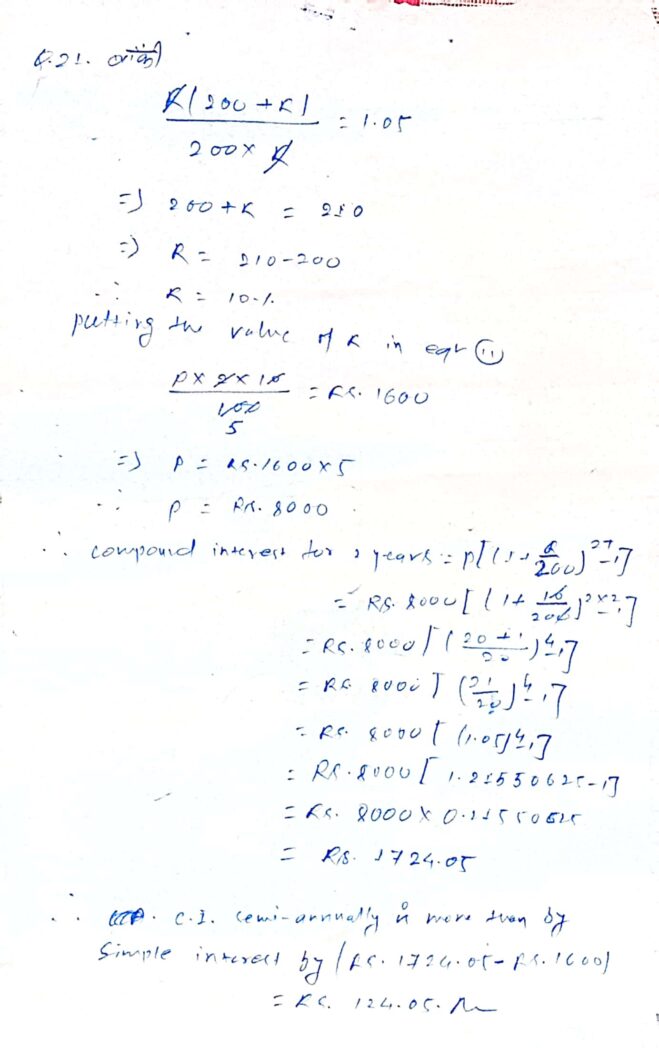 Q.21.
R(200 + R) / 200 × R = 1.05
=) 200 + R = 210
=) R = 210 - 200
∴ R = 10%
putting the value of R in eqn (ii)
P × 2 × 10 / 100 = Rs. 1600
5
=) P = Rs. 1600 × 5
∴ P = Rs. 8000
∴ compound interest for 2 years = P[(1 + R/200)^2T - 1]
= Rs. 8000 [(1 + 10/200)^2×2 - 1]
= Rs. 8000 [(20 + 1 / 20)^4 - 1]
= Rs. 8000 [(21/20)^4 - 1]
= Rs. 8000 [(1.05)^4 - 1]
= Rs. 8000 [1.21550625 - 1]
= Rs. 8000 × 0.21550625
= Rs. 1724.05
∴ C.I. semi-annually is more than by
Simple interest by (Rs. 1724.05 - Rs. 1600)
= Rs. 124.05.